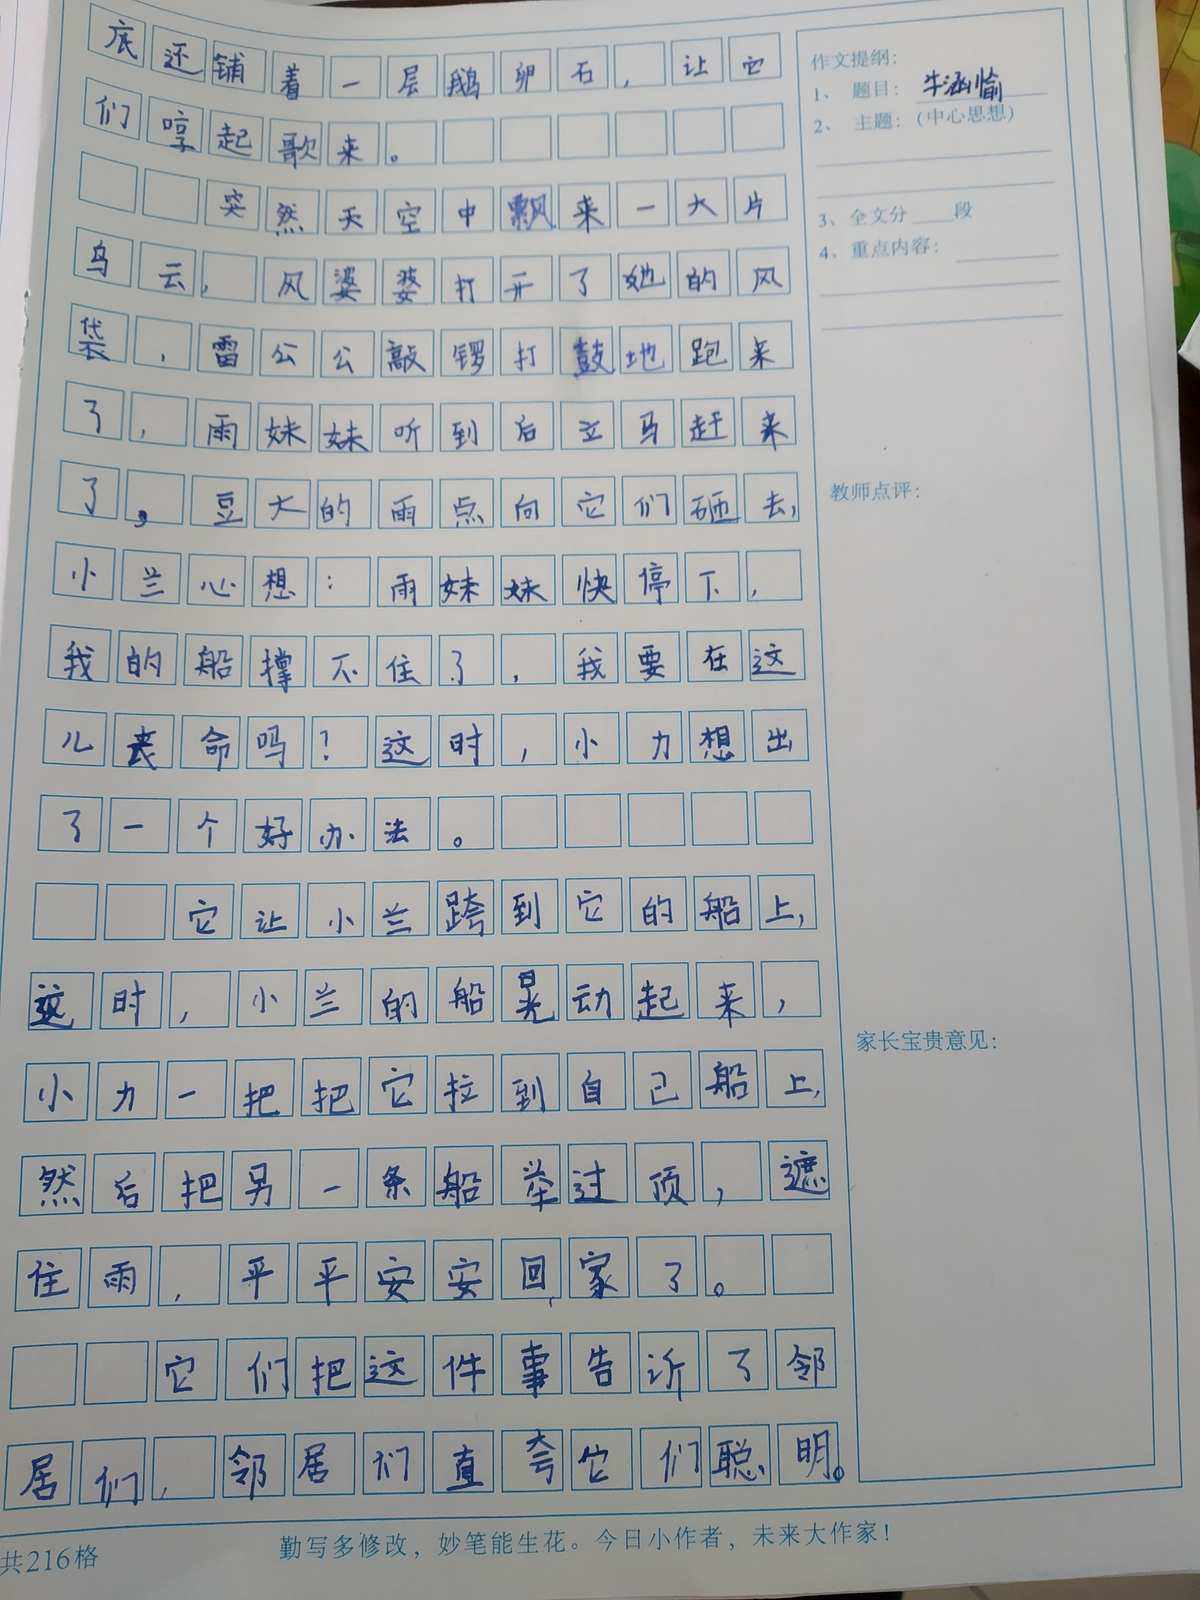 底还铺着一层鹅卵石，让它
们哼起歌来。
突然天空中飘来一大片
乌云，风婆婆打开了她的风
袋，雷公公敲锣打鼓地跑来
了，雨妹妹听到后立马赶来
了，豆大的雨点向它们砸去，
小兰心想：雨妹妹快停下，
我的船撑不住了，我要在这
儿丧命吗？这时，小力想出
了一个好办法。
它让小兰跨到它的船上，
这时，小兰的船晃动起来，
小力一把把它拉到自己船上，
然后把另一条船举过顶，遮
住雨，平平安安回家了。
它们把这件事告诉了邻
居们，邻居们直夸它们聪明。
作文提纲：
1、题目：牛涵愉
2、主题：（中心思想）
3、全文分 段
4、重点内容：
教师点评：
家长宝贵意见：
共216格
勤写多修改，妙笔能生花。今日小作者，未来大作家！